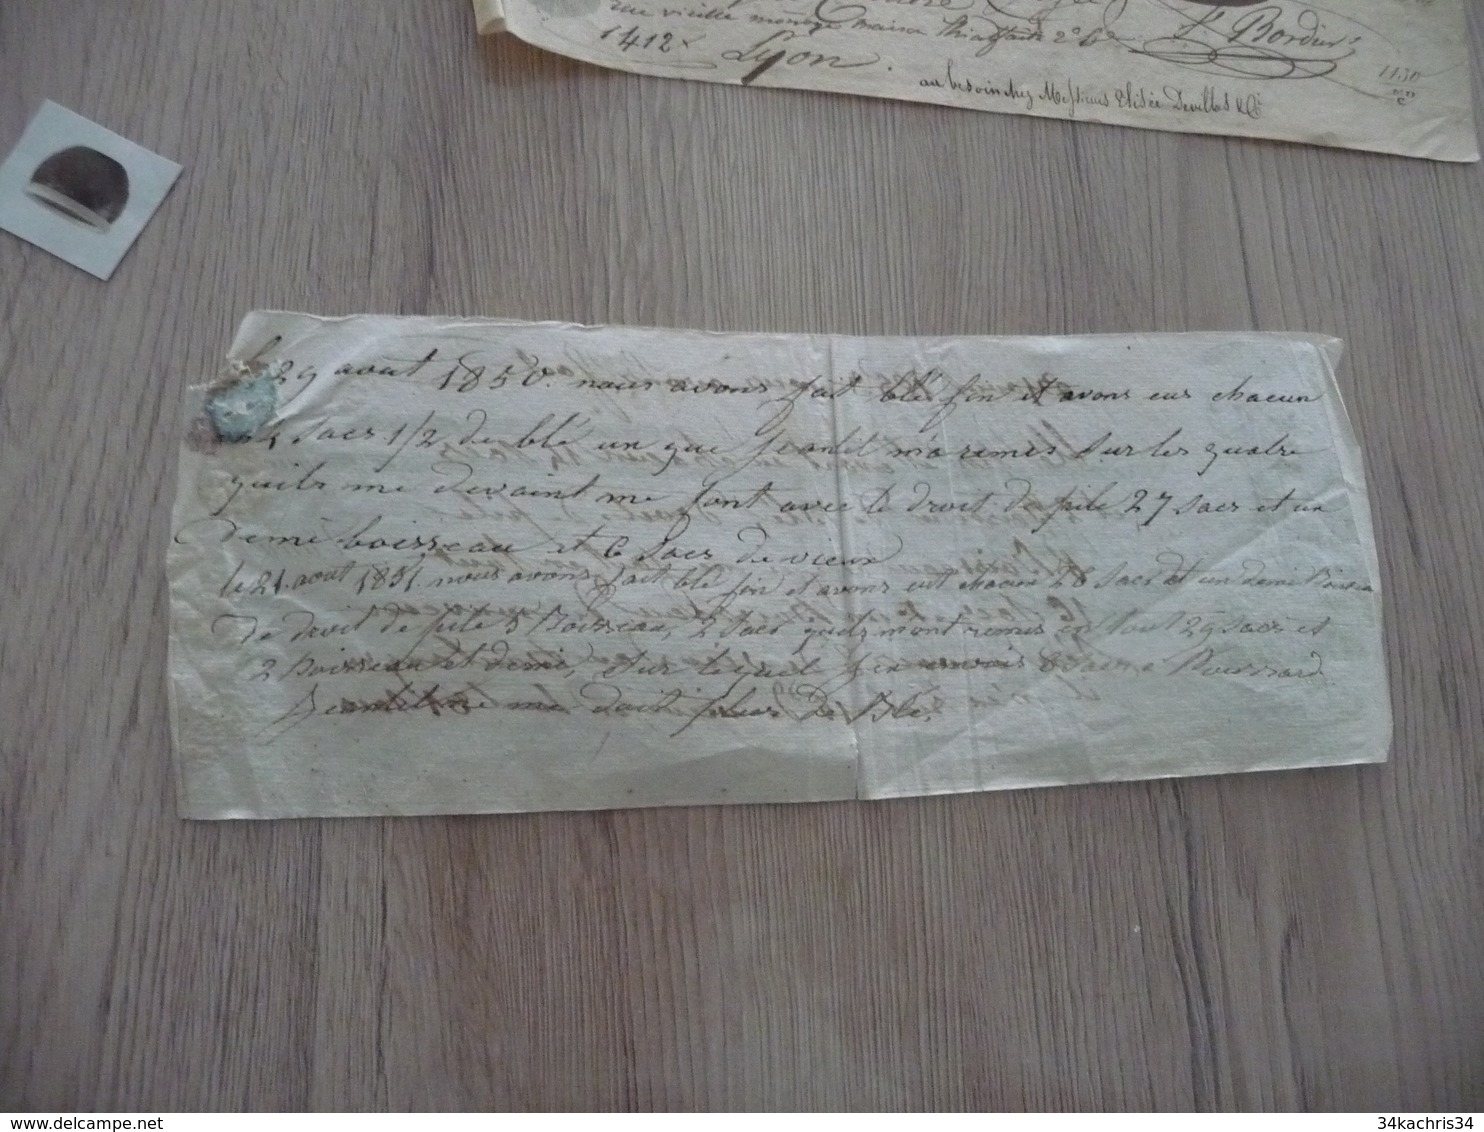 rue vieille monoye maison 2e
1412 Lyon.
Bordier
1130
au besoin chez Messieurs Elisée Devillas & Cie
le 29 avout 1850. nous avons fait blé fin et avons eus chacun
sacs 1/2 de blé un que Jeantil m'a remis sur les quatre
quils me devaint me font avec le droit de pile 27 sacs et un
demi boisseau et 6 sacs de vieux
le 21. aout 1851. nous avons fait blé fin et avons eut chacun 26 sacs et un demi Boisseau
de droit de pile 5 Boisseau, 2 sacs quils mont remis en tout 29 sacs et
2 Boisseau et demi, sur lequel jen envois 8 sacs a Poussard
Jeantil ne me doit plus de Blé.
34kachris34